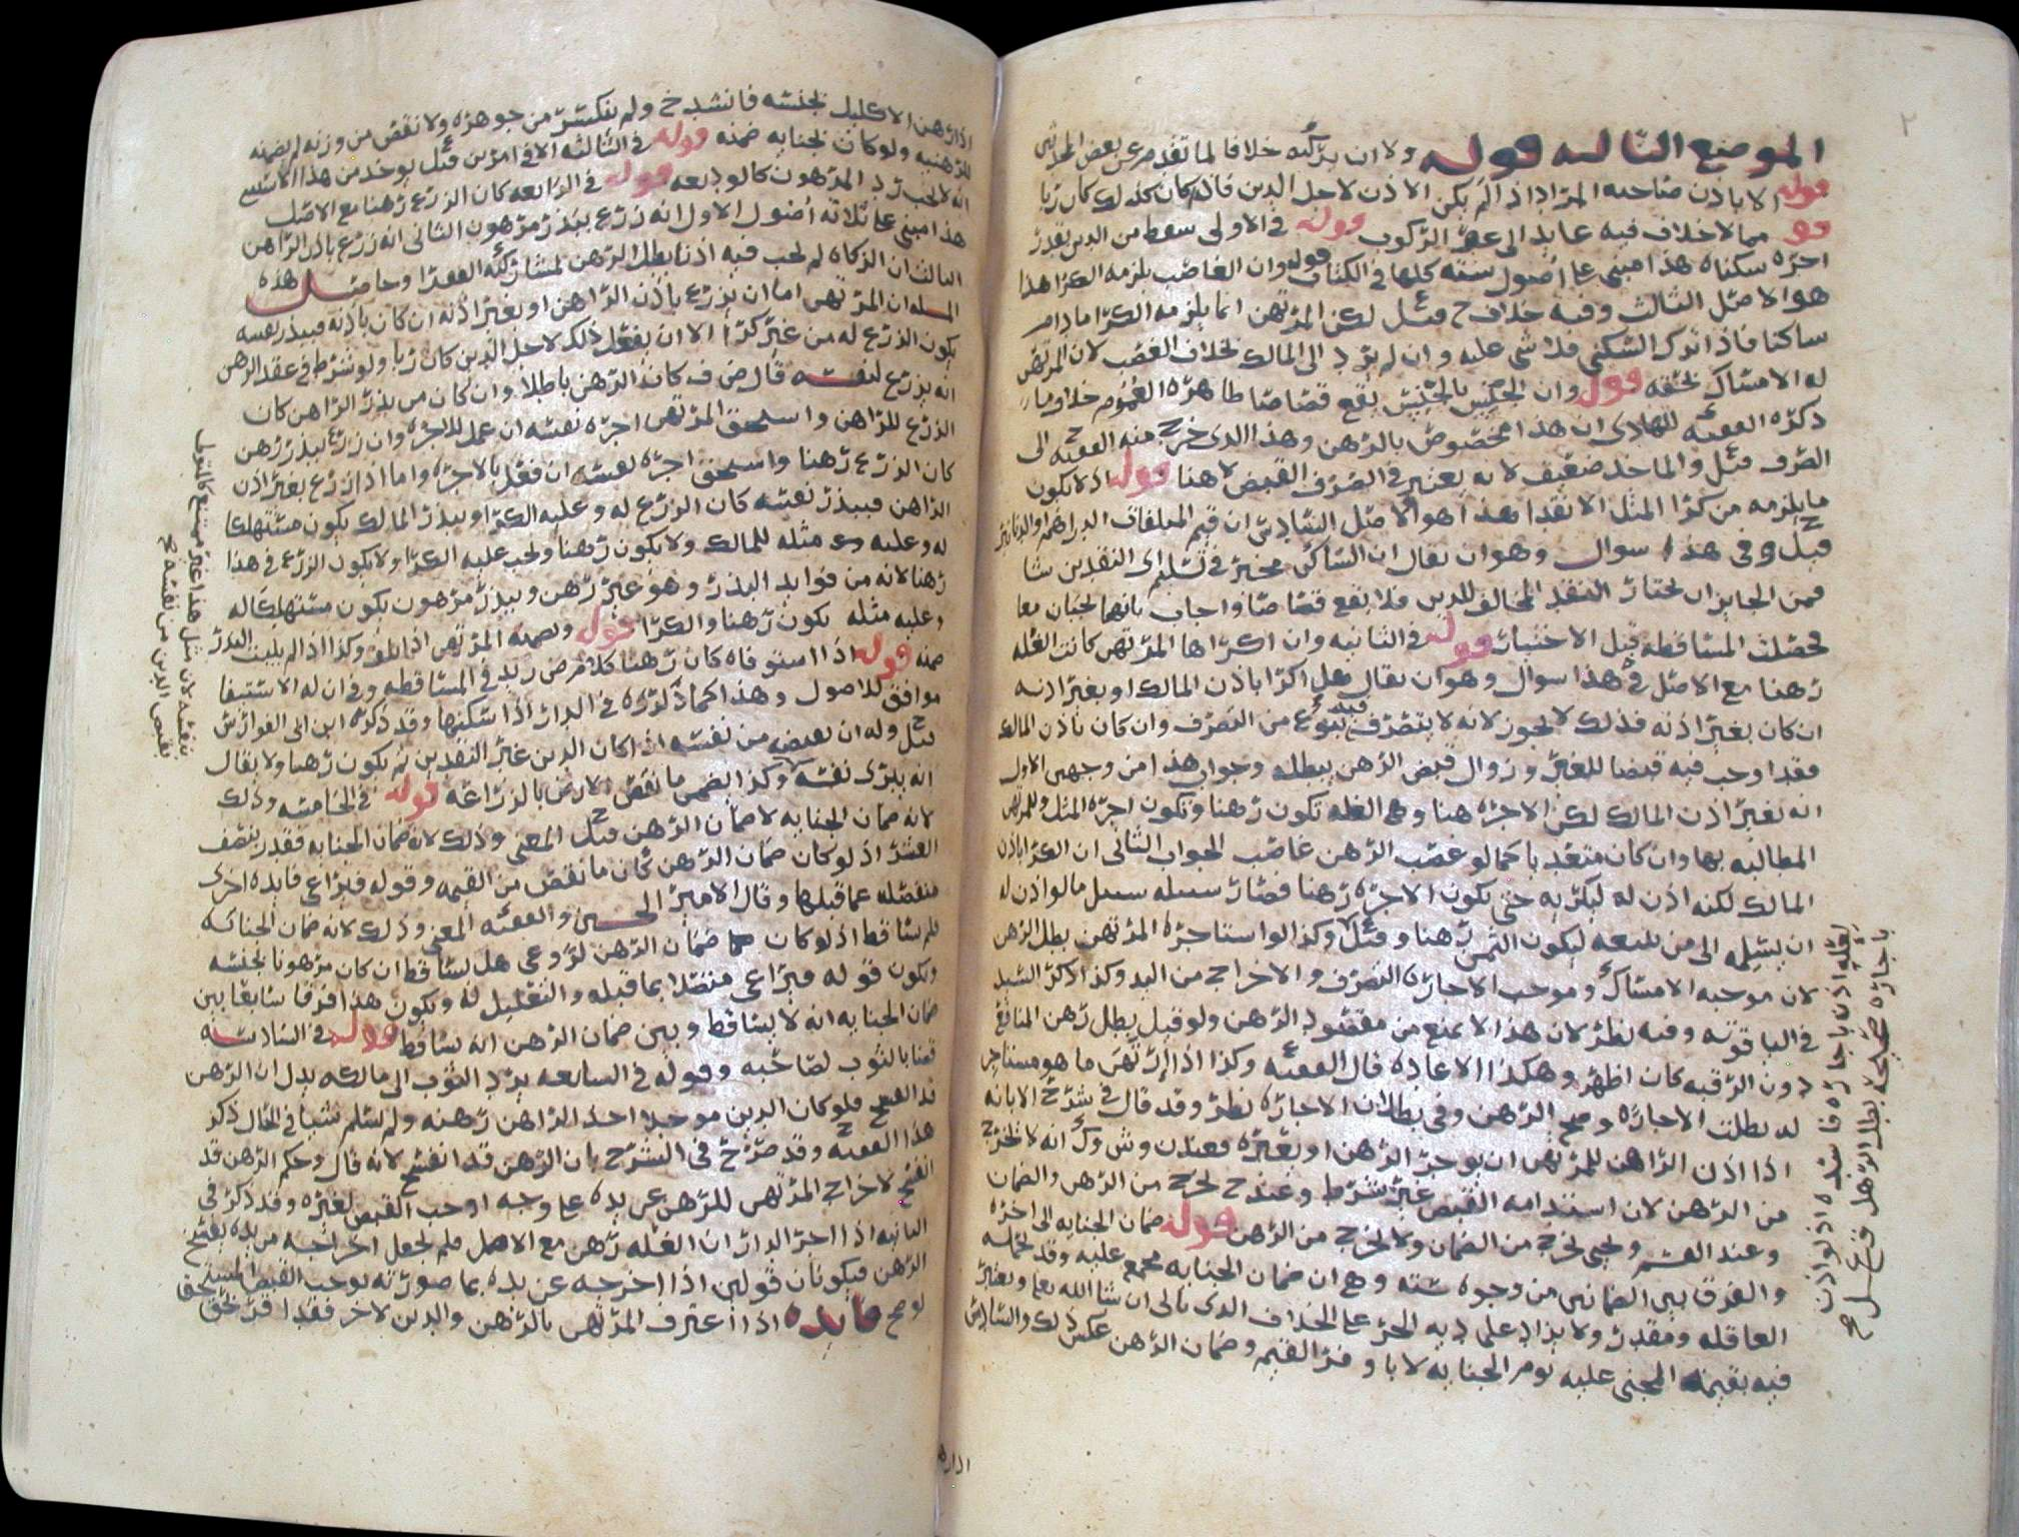 الموضع الثالثه قوله ولا ان يركبه خلافا لما تقدم عن بعض
قوله الا باذن صاحبه المراد اذا لم يكن الاذن لاجل الدين فانه كان كذلك كان ربا
قوله مما لا خلاف فيه عايد الى عقر الركوب قوله في الاولى سقط من الدين بقدر
اجره سكناه هذا مبني على اصول سته كلها في الكتاب قوله وان الغاصب يلزمه الكرا هذا
هو الاصل الثالث وفيه خلاف قيل لكن المرتهن انما يلزمه الكرا مادام
ساكنا فاذا ترك السكنى فلا شي عليه وان لم يرد الى المالك بخلاف الغصب لان المرتهن
له الامساك بحقه قوله وان الجنس بالجنس يقع قصاصا ظاهره العموم خلاف ما
ذكره الفقيه للهادي ان هذا مخصوص بالرهن وهذا الذي خرج منه الفقيه الى
الصرف قيل والماخذ ضعيف لانه يعتبر في الصرف القبض لا هنا قوله اذ لا يكون
ما يلزمه من كرا المثل الا نقدا هذا هو الاصل السادس ان قيم المتلفات الدراهم والدنانير
قيل وفي هذا سوال وهو ان يقال ان الساكن مخير في تسليم اي النقدين شا
فمن الجايز ان يختار النقد المخالف للدين فلا يقع قصاصا واجاب بانهما يجبان معا
فحصلت المساقطه قبل الاختيار قوله في الثانيه وان اكراها المرتهن كانت الغله
رهنا مع الاصل في هذا سوال وهو ان يقال هل اكرا باذن المالك او بغير اذنه
ان كان بغير اذنه فذلك لا يجوز لانه لا يتصرف فيه بنوع من التصرف وان كان باذن المالك
فقد اوجب فيه قبضا للغير وزوال قبض الرهن يبطله وجواب هذا من وجهين الاول
انه بغير اذن المالك لكن الاجره هنا وهي الغله تكون رهنا وتكون اجره المثل وللمرتهن
المطالبه بها وان كان متعديا كما لو غصب الرهن غاصب الجواب الثاني ان الكرا باذن
المالك لكنه اذن له ليكريه حتى يكون الاجره رهنا فصار سبيله سبيل ما لو اذن له
ان يسلمه الى من يبيعه ليكون الثمن رهنا وقيل وكذا لو استاجره المرتهن بطل الرهن
لان موجبه الامساك وموجب الاجاره التصرف والاخراج من اليد وكذا ذكر السيد
في الياقوته وفيه نظر لان هذا لا يمنع من مقصود الرهن ولو قيل يبطل رهن المنافع
دون الرقبه كان اظهر وهكذا الاعاره قال الفقيه وكذا اذا ارتهن ما هو مستاجر
له بطلت الاجاره وصح الرهن وفي بطلان الاجاره نظر وقد قال في شرح الابانه
اذا اذن الراهن للمرتهن ان يوجر الرهن او يعيره فعندن وش وك انه لا يخرج
من الرهن لان استدامه القبض غير شرط وعند ح يخرج من الرهن والضمان
وعند يخرج من الضمان ولا يخرج من الرهن قوله ضمان الجنايه الى اخره
والفرق بين الضمانين من وجوه سته وهي ان ضمان الجنايه مجمع عليه وقد تحمله
العاقله ومقدر ولا يزاد على ديه الحر على الخلاف الذي ياتي ان شا الله تعالى ويعتبر
فيه بقيمه المجنى عليه يوم الجنايه لا باوفر القيم وضمان الرهن عكس ذلك والسادس
لعله اذن باجاره فاسده اذ لو اذن
باجاره صحيحه بطل الرهن
اذا رهن الاكليل بجنسه فانشدخ ولم ينكسر من جوهره ولا نقص من وزنه لم يضمنه
للرهنيه ولو كان بجنايه ضمنه قوله في الثالثه الا في امرين قيل يوخذ من هذا
انه لا يجب رد المرهون كالوديعه قوله في الرابعه كان الزرع رهنا مع الاصل
هذا مبني على ثلاثه اصول الاول انه زرع ببذر مرهون الثاني انه زرع باذن الراهن
الثالث ان الزكاه لم تجب فيه اذ تبطل الرهن لمشاركه الفقرا وحاصل هذه
المسله ان المرتهن اما ان يزرع باذن الراهن او بغير اذنه ان كان باذنه فببذر نفسه
يكون الزرع له من غير كرا الا ان يفعل ذلك لاجل الدين كان ربا ولو شرط في عقد الرهن
انه يزرع لنفسه قال ض ف كان الرهن باطلا وان كان من بذر الراهن كان
الزرع للراهن واستحق المرتهن اجره نفسه ان عمل للاجره وان زرع ببذر رهن
كان الزرع رهنا واستحق اجره نفسه ان فعل بالاجره واما اذا زرع بغير اذن
الراهن فببذر نفسه كان الزرع له وعليه الكرا وببذر المالك يكون مستهلكا
له وعليه مثله للمالك ولا يكون رهنا ويجب عليه الكرا ولا يكون الزرع في هذا
رهنا لانه من فوايد البذر وهو غير رهن وببذر مرهون يكون مستهلكا له
وعليه مثله يكون رهنا والكرا قوله وضمنه المرتهن اذا تلف وكذا اذا لم ينبت البذر
ضمنه قوله اذا استوفاه كان رهنا كلام ض زيد في المساقطه وفي ان له الاستيفا
موافق للاصول وهذا كما ذكروه في الدار اذا سكنها وقد ذكره ابن ابي الفوارس
قيل وله ان يقبض من نفسه اذا كان الدين غير النقدين ثم يكون رهنا ولا يقال
انه يبرى نفسه وكذا يضمن ما نقص الارض بالزراعه قوله في الخامسه وذلك
لانه ضمان الجنايه لا ضمان الرهن قيل المعنى وذلك لانه ضمان الجنايه فقدر بنصف
العشر اذ لو كان ضمان الرهن كان ما نقص من القيمه وقوله فيراعى فايده اخرى
منفصله عما قبلها وقال الامير الحسين والفقيه المعنى وذلك لانه ضمان الجنايه
فلم يساقط اذ لو كان ضمان الرهن لروعي هل يساقط ان كان مرهونا بجنسه
ويكون قوله فيراعى متصلا بما قبله والتعليل له ويكون هذا فرقا سابعا بين
ضمان الجنايه انه لا يساقط وبين ضمان الرهن انه يساقط قوله في السادسه
قضا بالثوب لصاحبه وقوله في السابعه يرد الثوب الى مالكه يدل ان الرهن
قد انفسخ فلو كان الدين موجلا اخذ الراهن رهنه ولم يسلم شيا في الحال ذكر
هذا الفقيه وقد صرح في الشرح بان الرهن قد انفسخ لانه قال وحكم الرهن قد
انفسخ لاخراج المرتهن للرهن عن يده على وجه اوجب القبض لغيره وقد ذكر في
الثانيه اذا اجر الدار ان الغله رهن مع الاصل فلم يجعل اخراجه من يده يفسخ
الرهن فيكونان قولين اذا اخرجه عن يده بما صورته يوجب القبض المستحق
لو صح فايده اذا اعترف المرتهن بالرهن والدين لاخر فقد اقر بحق
بنفسه لان مثل هذا غير ممتنع كالتولي
يقبض الدين من نفسه